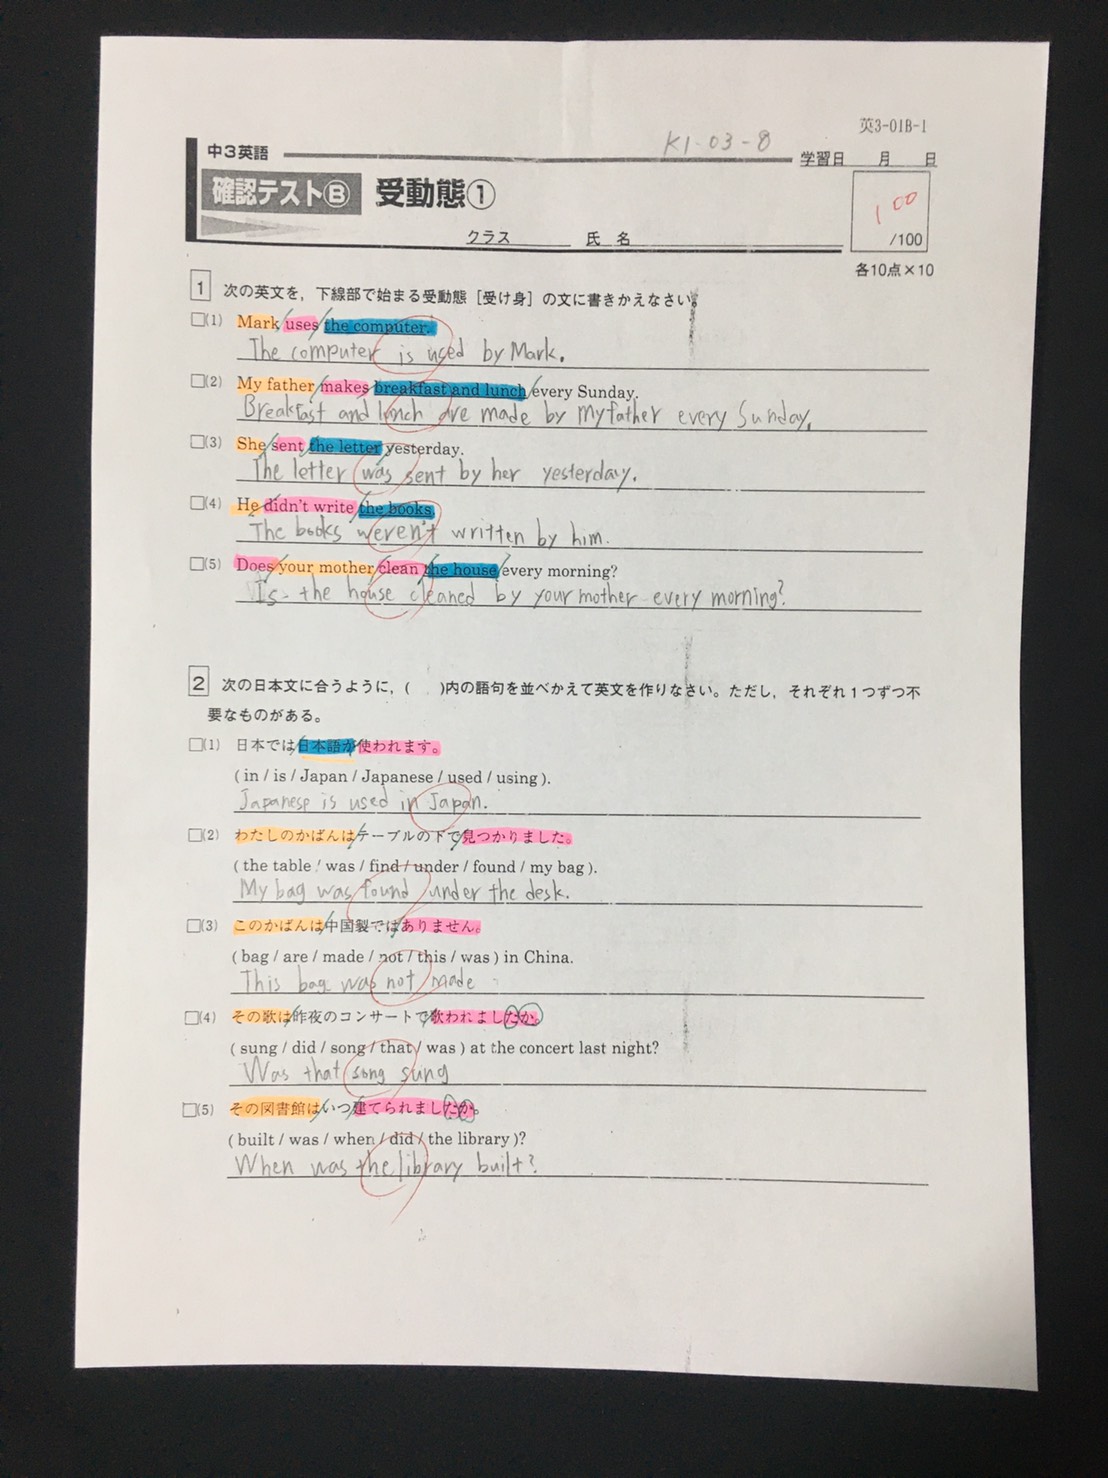 英3-01B-1
K1-03-8
中3英語
学習日 月 日
確認テストⒷ 受動態①
100
/100
クラス 氏名
各10点×10
1 次の英文を，下線部で始まる受動態［受け身］の文に書きかえなさい。
□(1) Mark uses the computer.
The computer is used by Mark.
□(2) My father makes breakfast and lunch every Sunday.
Breakfast and lunch are made by my father every Sunday.
□(3) She sent the letter yesterday.
The letter was sent by her yesterday.
□(4) He didn't write the books.
The books weren't written by him.
□(5) Does your mother clean the house every morning?
Is the house cleaned by your mother every morning?
2 次の日本文に合うように，(　)内の語句を並べかえて英文を作りなさい。ただし，それぞれ1つずつ不
要なものがある。
□(1) 日本では日本語が使われます。
( in / is / Japan / Japanese / used / using ).
Japanese is used in Japan.
□(2) わたしのかばんはテーブルの下で見つかりました。
( the table / was / find / under / found / my bag ).
My bag was found under the desk.
□(3) このかばんは中国製ではありません。
( bag / are / made / not / this / was ) in China.
This bag was not made
□(4) その歌は昨夜のコンサートで歌われましたか。
( sung / did / song / that / was ) at the concert last night?
Was that song sung
□(5) その図書館はいつ建てられましたか。
( built / was / when / did / the library )?
When was the library built?